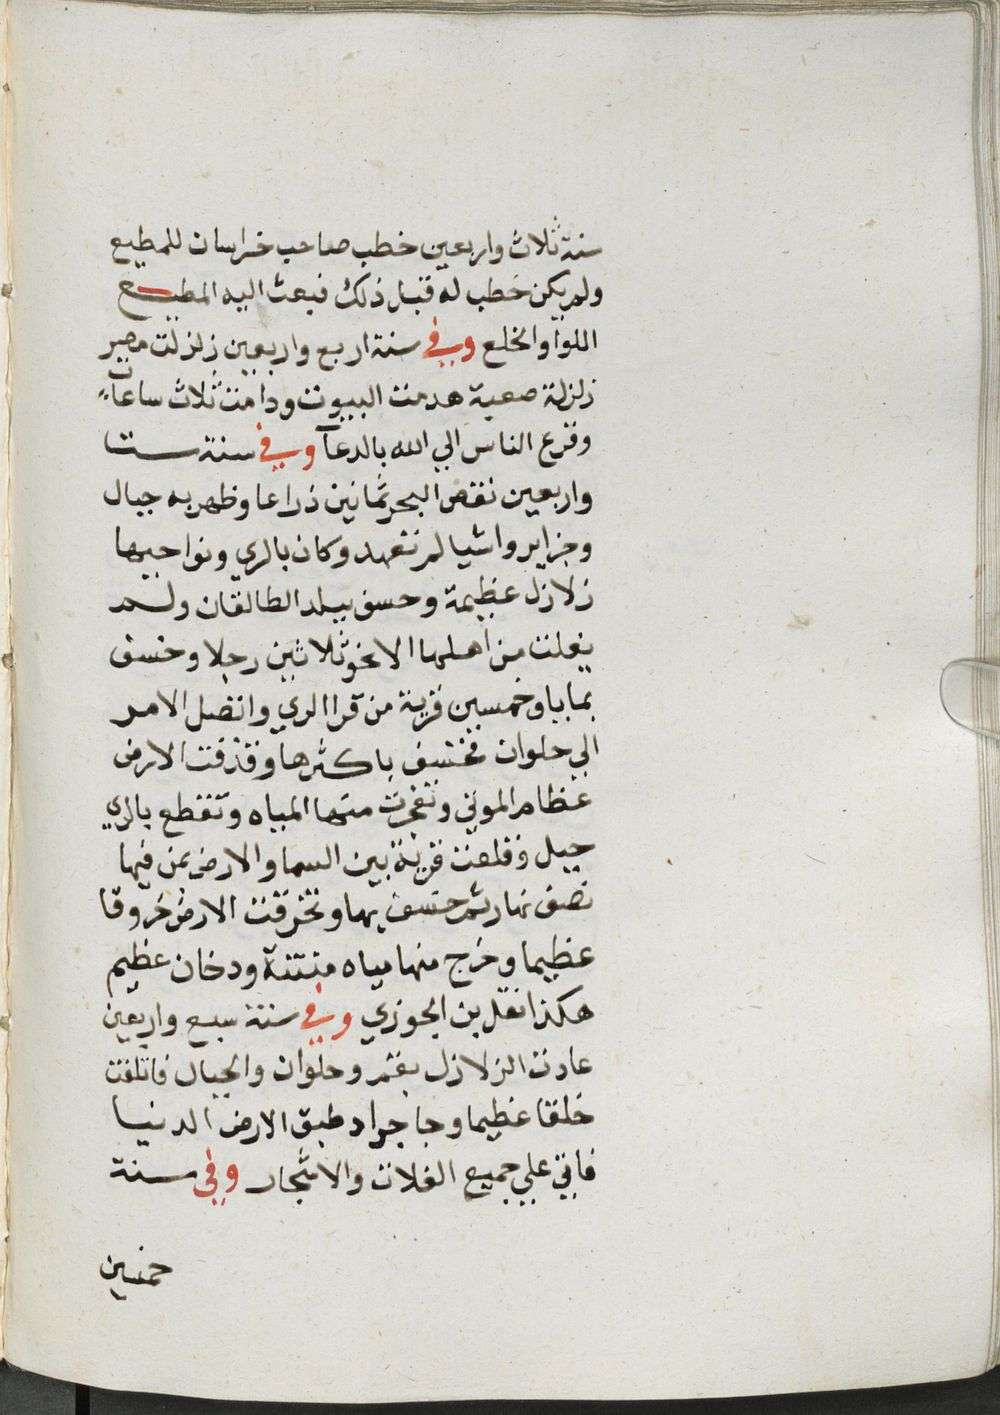 سنة ثلاث واربعين خطب صاحب خراسان للمطيع
ولم يكن خطب له قبل ذلك فبعث اليه المطيع
اللوا والخلع وفي سنة اربع واربعين زلزلت مصر
زلزلة صعبة هدمت البيوت ودامت ثلاث ساعات
وفزع الناس الي الله بالدعآ وفي سنة ست
واربعين نقص البحر ثمانين ذراعا وظهر به جبال
وجزاير واشيا لم تعهد وكان بالري ونواحيها
زلازل عظيمة وخسف ببلد الطالقان ولم
يفلت من اهلها الا نحو ثلاثين رجلا وخسف
بمايا وخمسين قرية من قرا الري واتصل الامر
الي حلوان فخسف باكثرها وقذفت الارض
عظام الموتي وتفجرت منها المياه وتقطع بالري
جبل وقلعت قرية بين السما والارض بمن فيها
نصف نهار ثم خسف بها وتخرقت الارض خروقا
عظيما وخرج منها مياه منتنة ودخان عظيم
هكذا نقل بن الجوزي وفي سنة سبع واربعين
عادت الزلازل بقم وحلوان والجبال فاتلفت
خلقا عظيما وجا جراد طبق الارض الدنيا
فاتي علي جميع الغلات والاشجار وفي سنة
خمسين